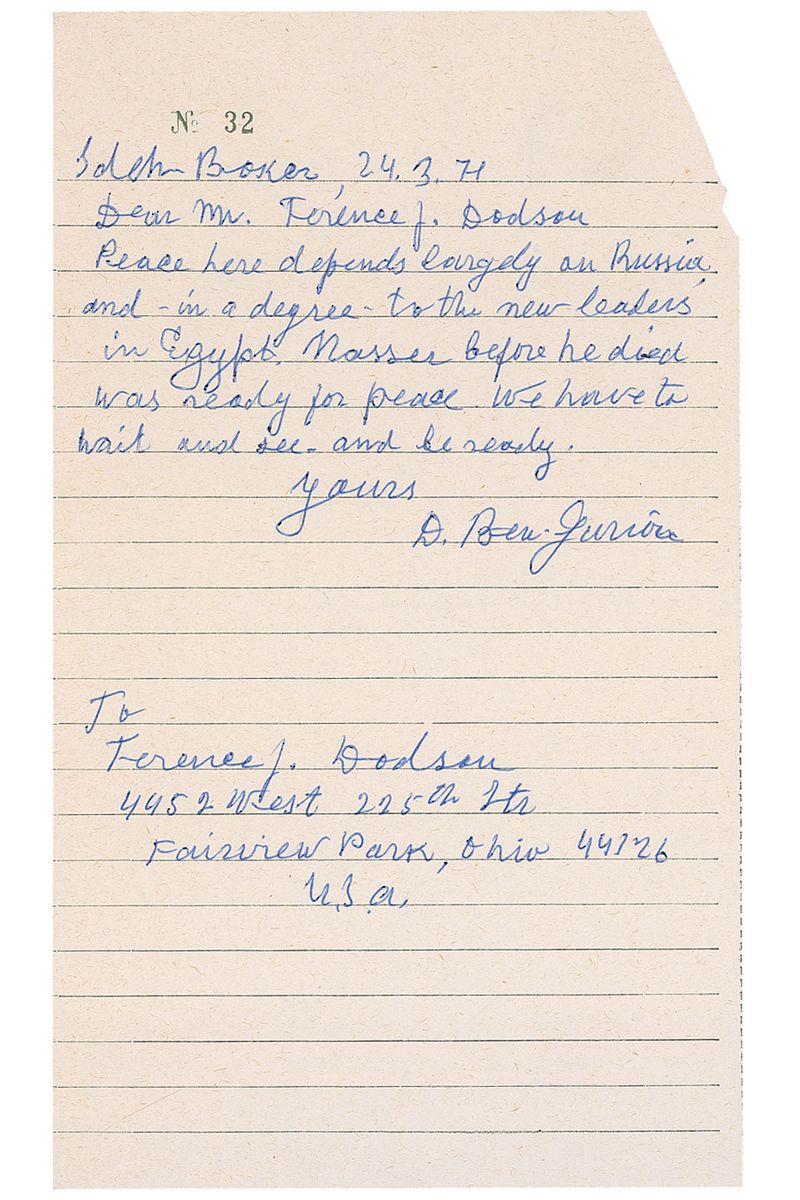 № 32
Sdeh-Boker, 24.3.71
Dear Mr. Terence J. Dodson
Peace here depends largely on Russia,
and - in a degree - to the new leaders
in Egypt. Nasser before he died
was ready for peace. We have to
wait and see - and be ready.
Yours
D. Ben-Gurion
To
Terence J. Dodson
4452 West 225th Str
Fairview Park, Ohio 44126
U.S.A.